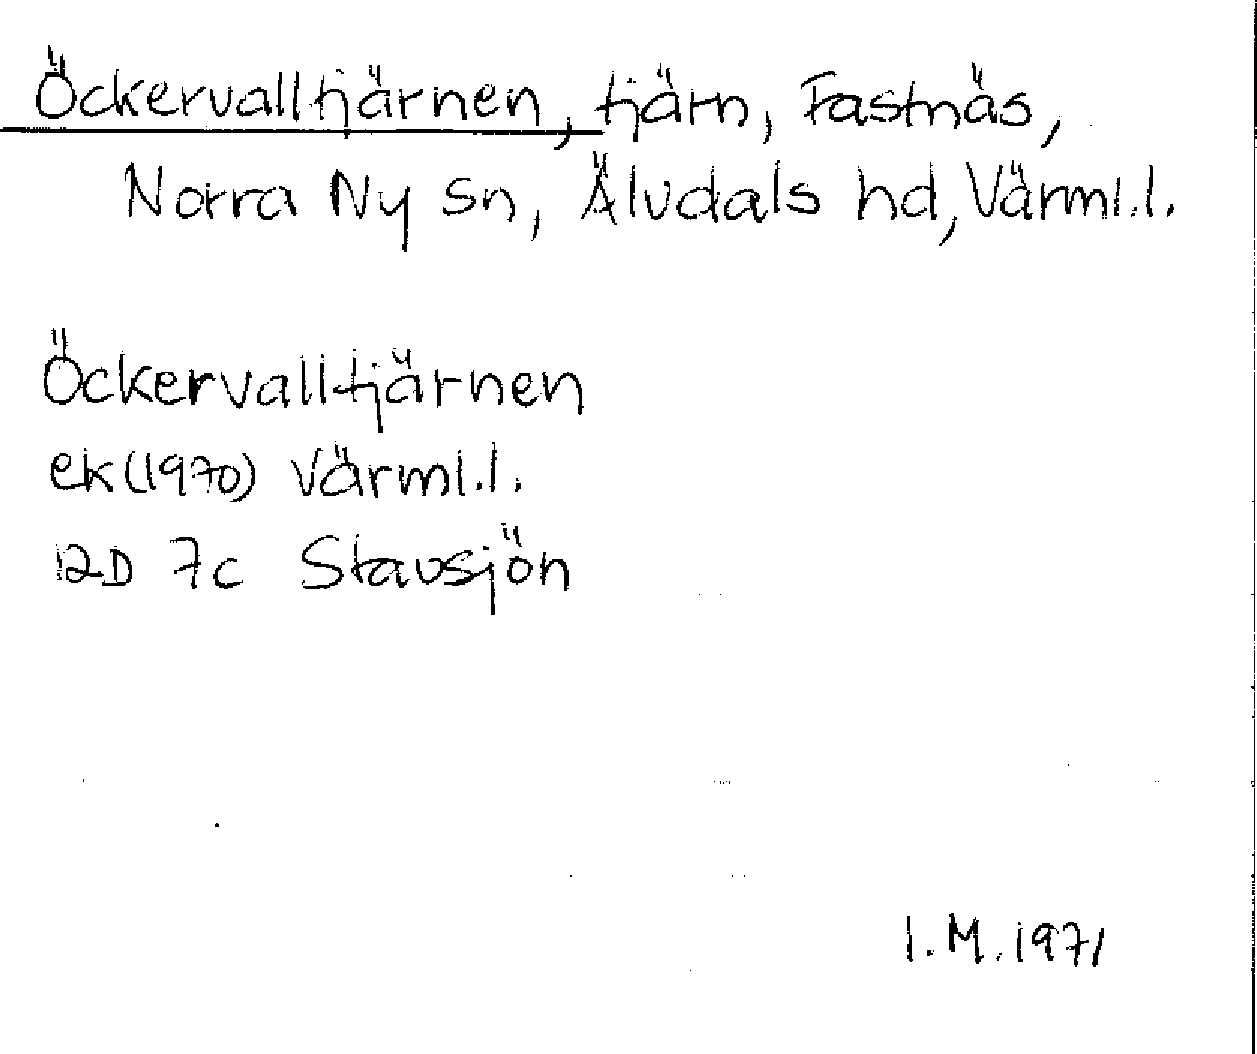 Öckervalltjärnen, tjärn, Fastnäs,
Norra Ny sn, Älvdals hd, Värml.l.
Öckervalltjärnen
ek (1970) Värml.l.
12D 7c Stavsjön
I.M. 1971